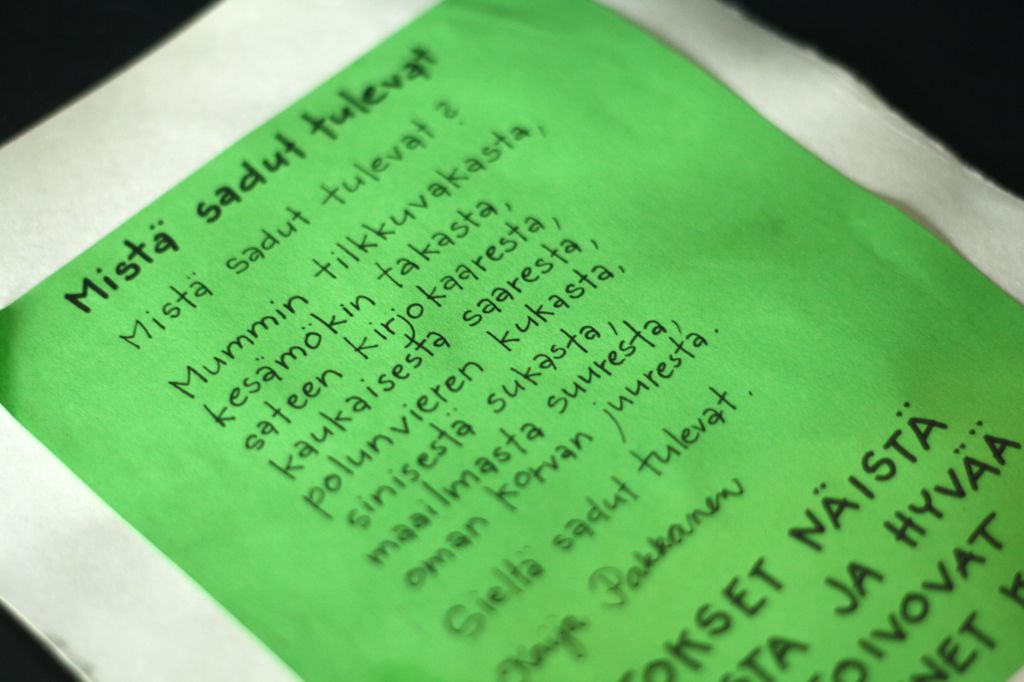 Mistä sadut tulevat
Mistä sadut tulevat?
Mummin tilkkuvakasta,
kesämökin takasta,
sateen kirjokaaresta,
kaukaisesta saaresta,
polunvieren kukasta,
sinisestä sukasta,
maailmasta suuresta,
oman korvan juuresta.
Sieltä sadut tulevat.
Kaija Pakkanen
TOKSET NÄISTÄ
STA JA HYVÄÄ
TOIVOVAT
NET